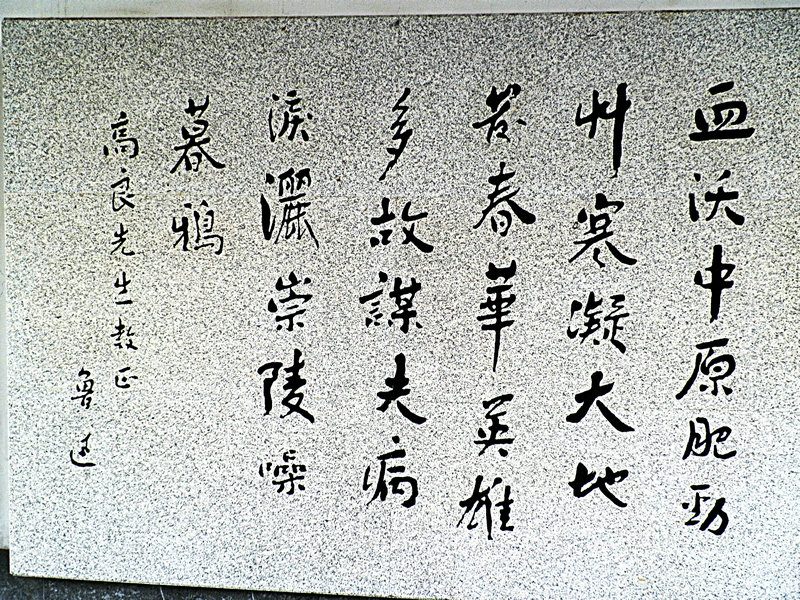 血沃中原肥勁
艸寒凝大地
發春華英雄
多故謀夫病
淚灑崇陵噪
暮鴉
高良先生教正
魯迅